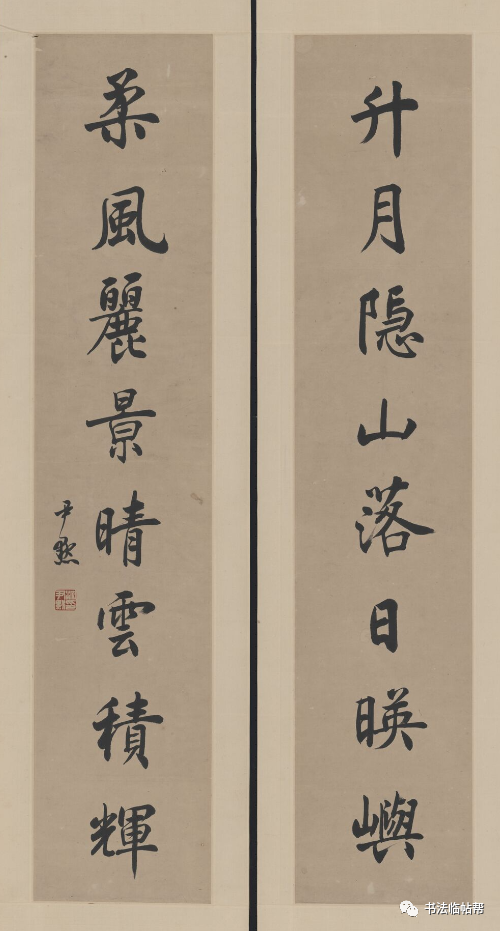 升月隐山落日暎嶼
柔風麗景晴雲積輝
尹默
书法临帖帮